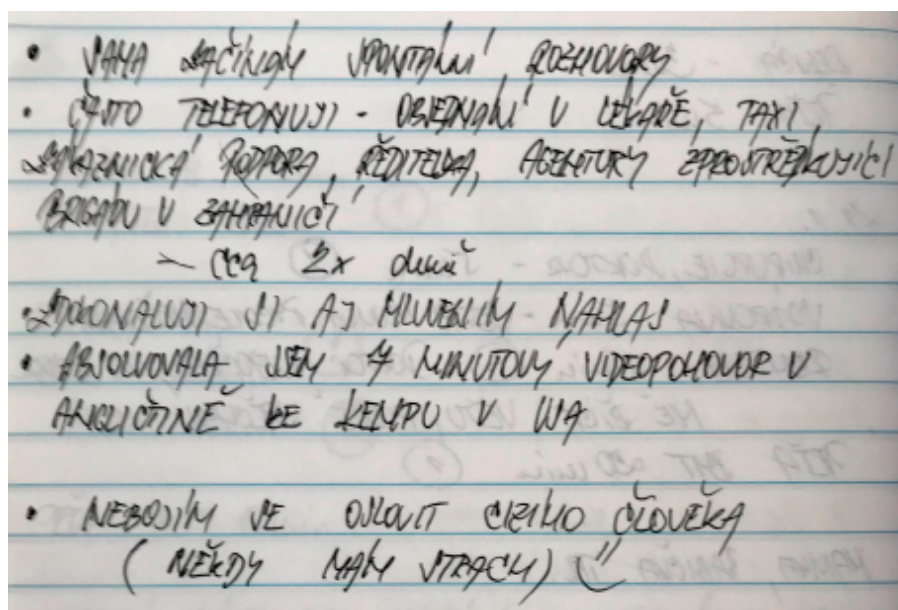 • SAMA ZAČÍNÁM SPONTÁNNÍ ROZHOVORY
• ČASTO TELEFONUJI - OBJEDNÁNÍ U LÉKAŘE, TAXI,
ZÁKAZNICKÁ PODPORA, ŘEDITELKA, AGENTURY ZPROSTŘEDKUJÍCÍ
BRIGÁDU V ZAHRANIČÍ
- CCA 2x denně
• ZDOKONALUJI SI AJ MLUVENÍM NAHLAS
• ABSOLVOVALA JSEM 7 MINUTOVÝ VIDEOPOHOVOR V
ANGLIČTINĚ KE KEMPU V USA
• NEBOJÍM SE OSLOVIT CIZÍHO ČLOVĚKA
(NĚKDY MÁM STRACH)